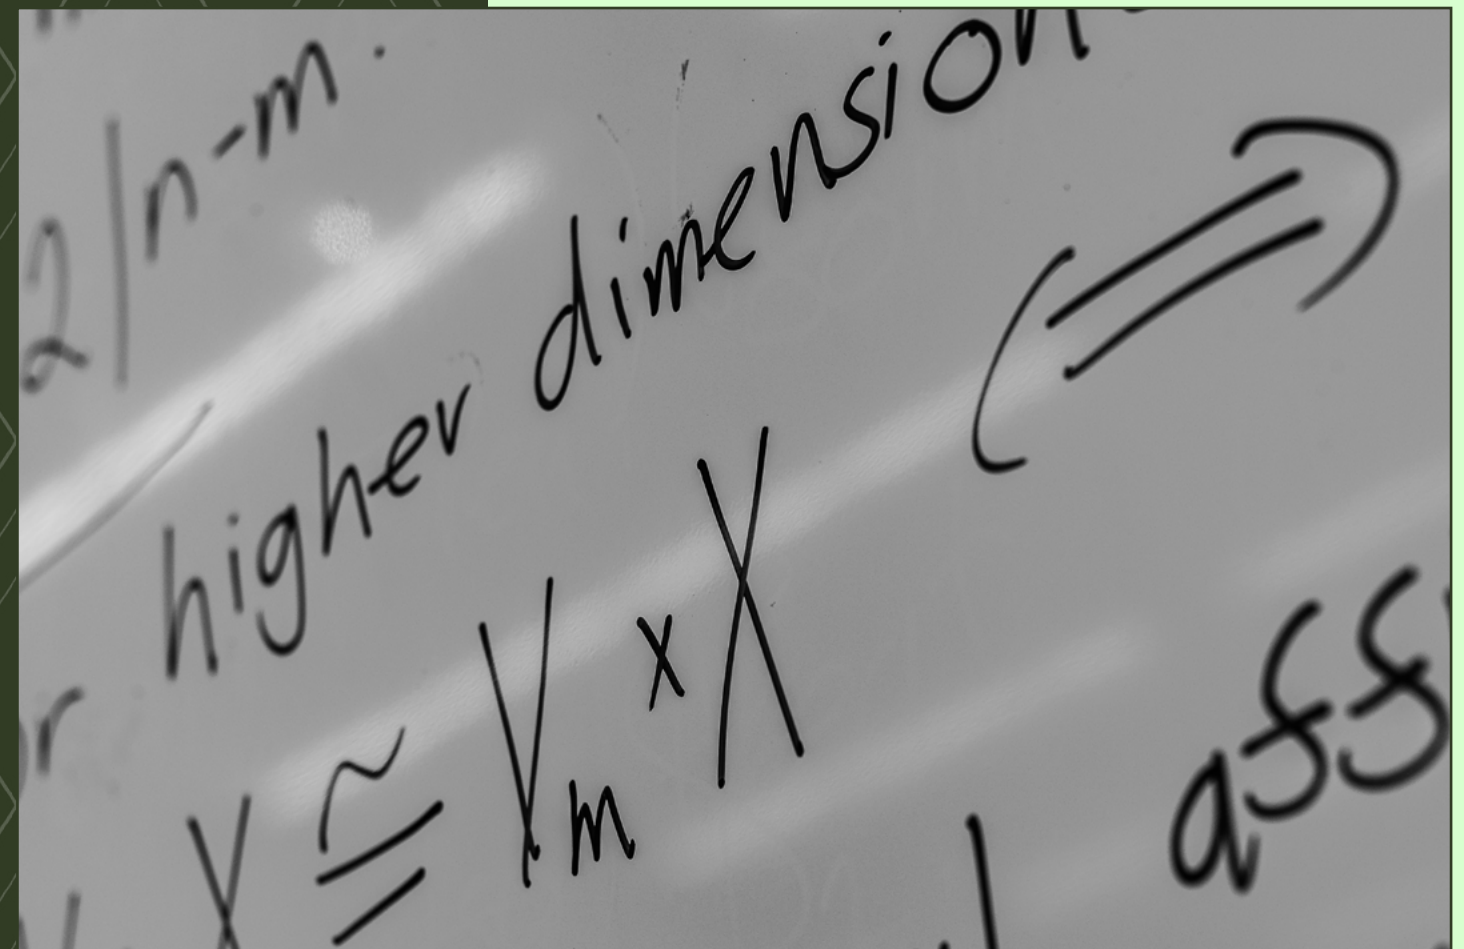 2|n-m.
r higher dimension
X ≅ Vm × X (⇒)
aff